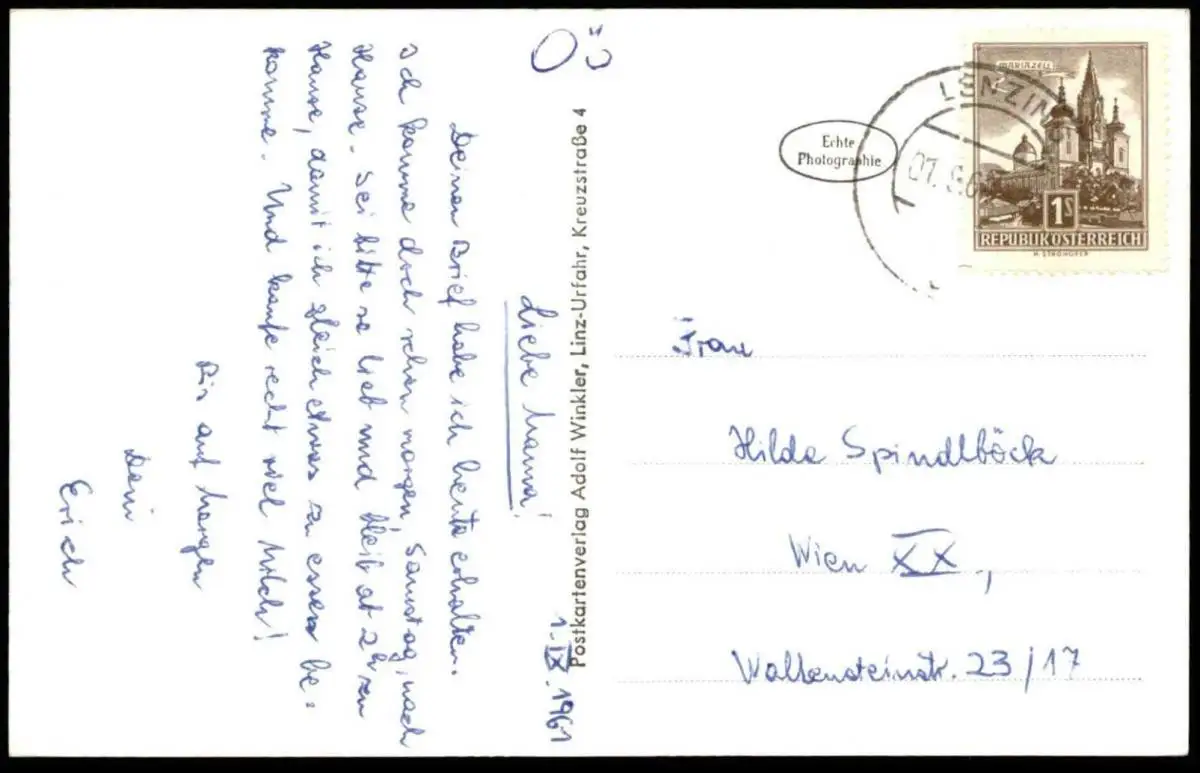 OÖ
1. IX. 1961
Liebe Mama!
Deinen Brief habe ich heute erhalten.
Ich komme doch schon morgen, Samstag, nach
Hause. Sei bitte so lieb und bleib ab 2h zu
Hause, damit ich gleich etwas zu essen be-
komme. Und kaufe recht viel Milch!
Bis auf morgen
Dein
Erich
Postkartenverlag Adolf Winkler, Linz-Urfahr, Kreuzstraße 4
Echte
Photographie
LENZING
MARIAZELL
1S
REPUBLIK ÖSTERREICH
Frau
Hilda Spindlböck
Wien XX,
Wallensteinstr. 23/17